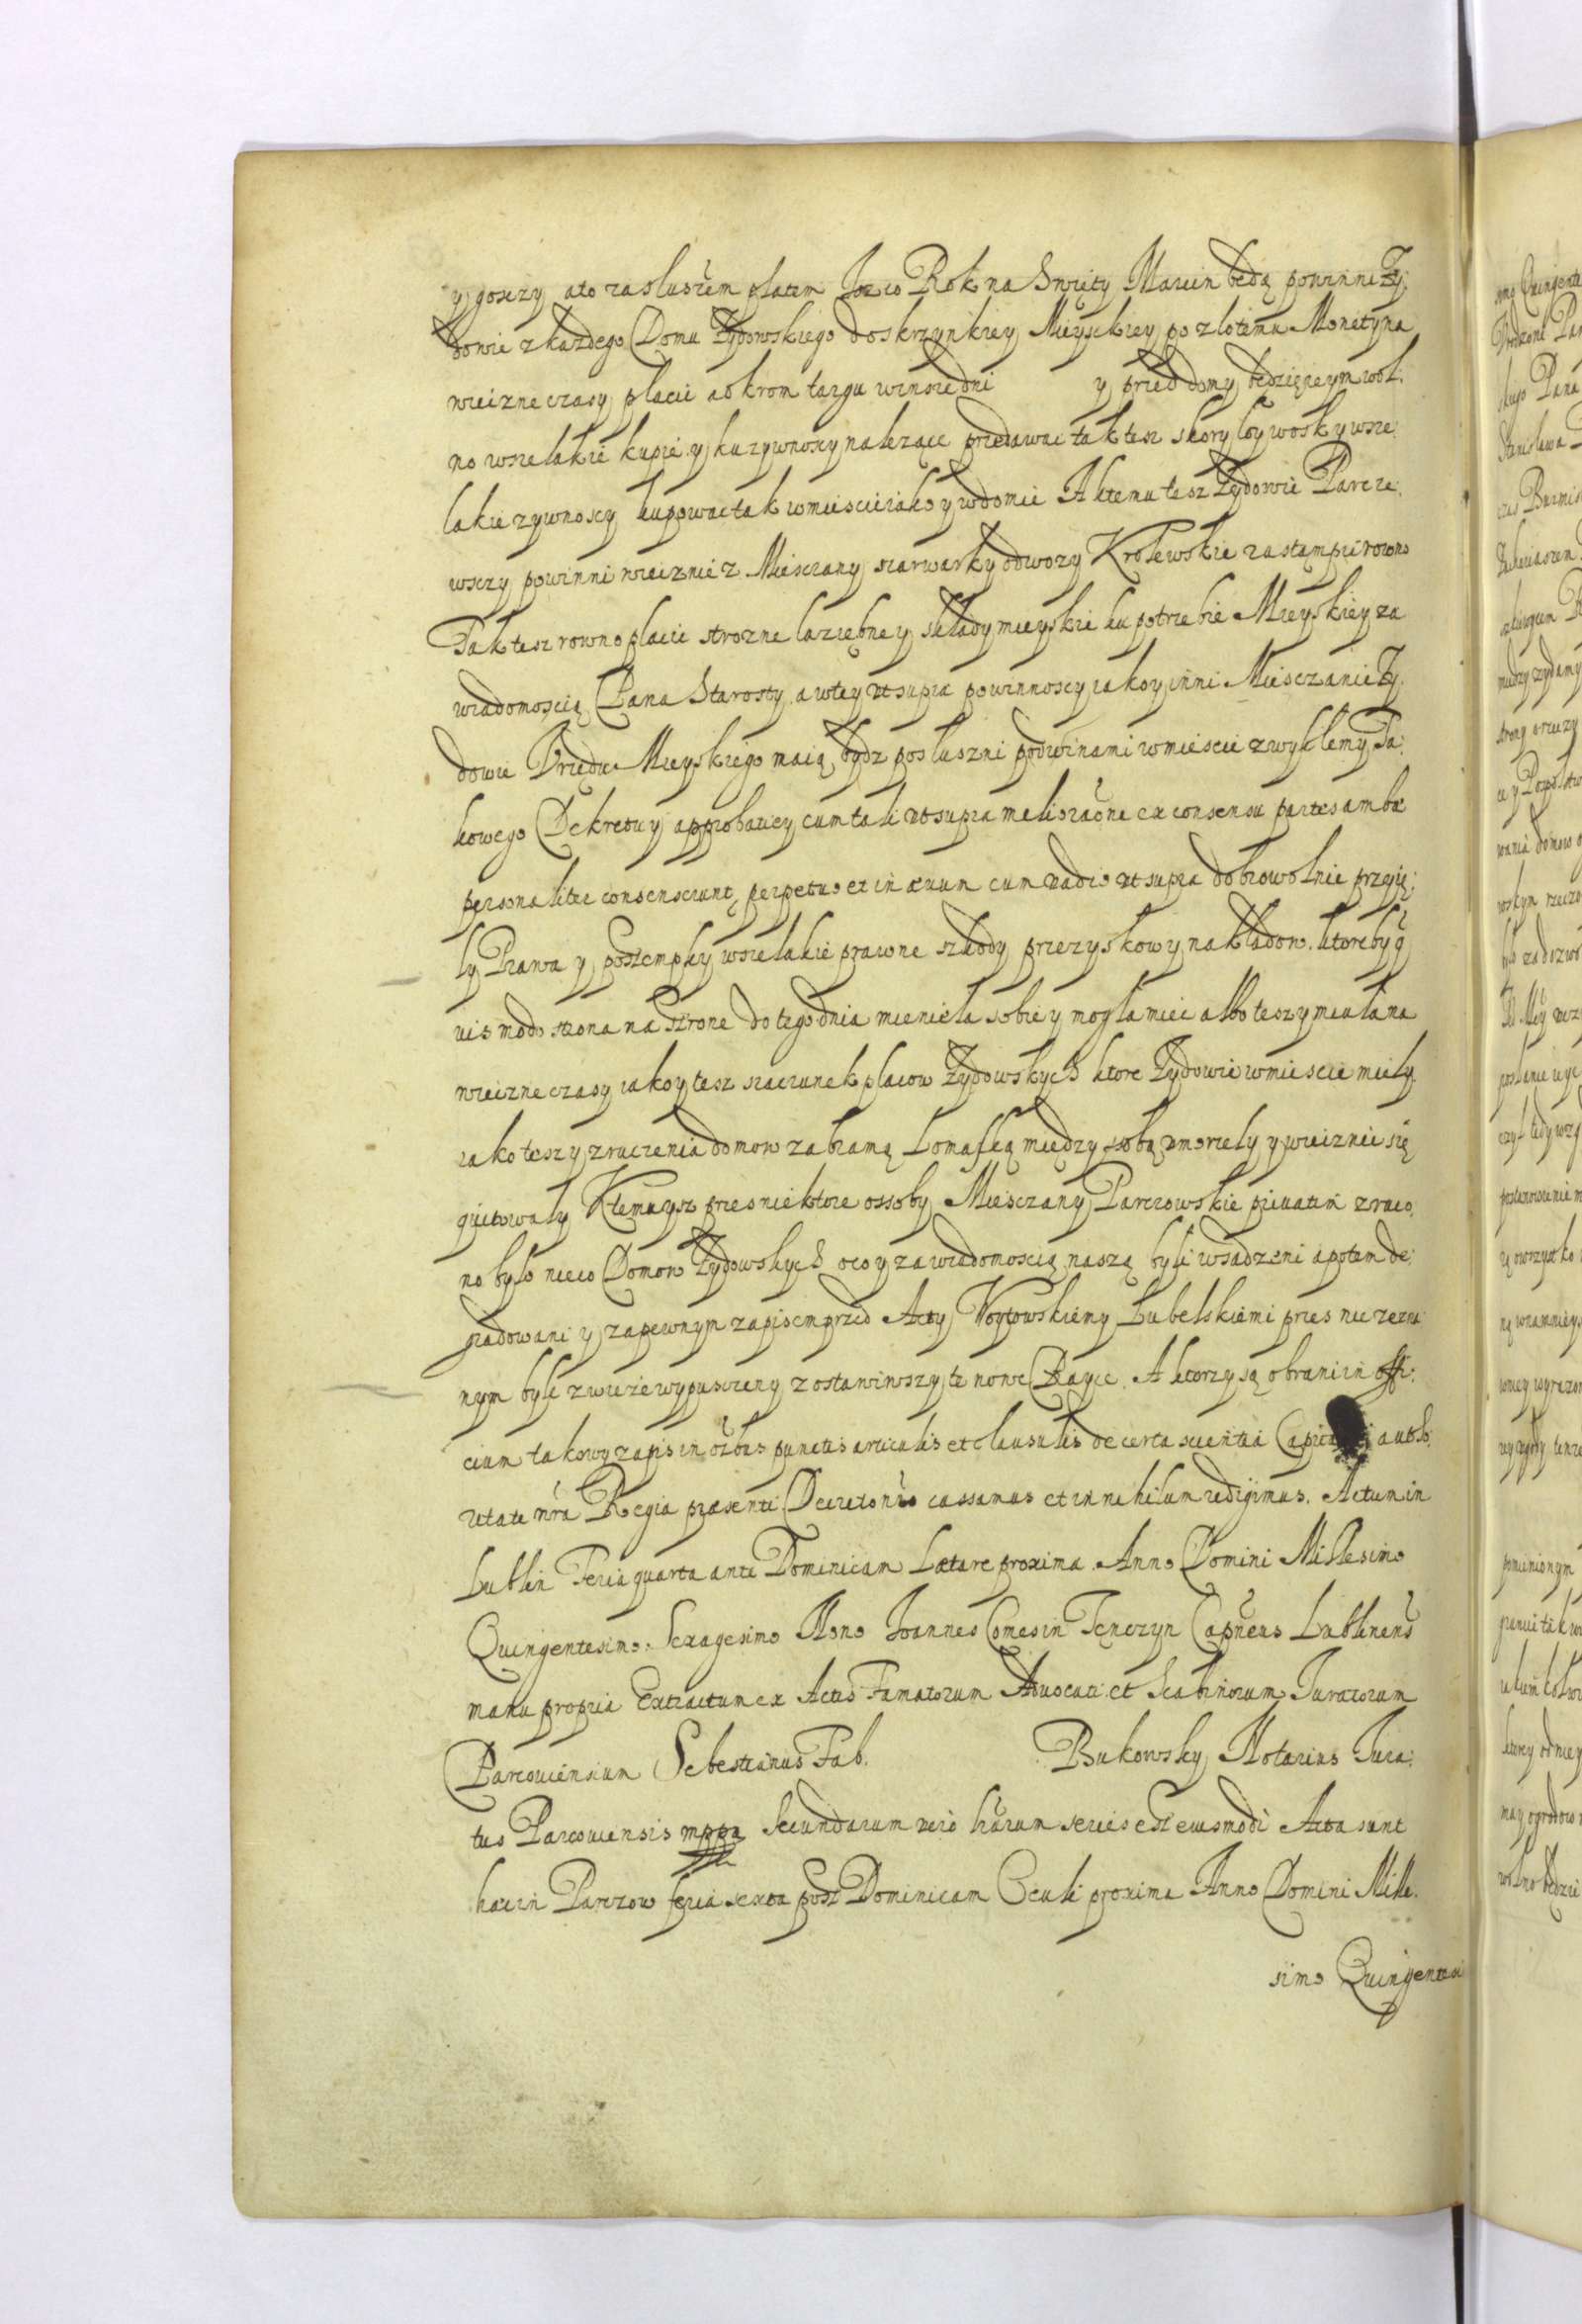 y gosczy ato zasluszem platem Jzco Rok na Swięty Marcin będą powinni Ży:
dowie zkażdego Domu Żydowskiego do skrzynkiey Mieysckiey po zlotemu Monety na
wieczne czasy placic a okrom targu winsze dni y przed domy będzięie ym wol:
no wszelakie kupie y ku zywnoscy nalezące przedawac tak tesz skory loy wosk y wsze
lakie zywnoscy kupowac tak wmiescie iako y wdomie A ktemu tesz Żydowie Parcze
wsczy powinni wiecznie z Miesczany szarwarky odwozy Krolewskie zastąmpic rowno
Tak tesz rowno placic strozne laziębne y sklady mieyskie ku potrzebie Mieyskiey za
wiadomoscią Pana Starosty a wtey ut supra powinnoscy iako y inni Miesczanie Ży
dowie Vrzędu Mieyskiego maią bydz posluszni podwinami wmiescie zwyklemy Ta:
kowego Dekretu y approbatiey cum tali ut supra melioraõne ex consensu partes ambæ
personaliter consenserunt perpetuo et in ævum cum vadio ut supra dobrowolnie przyię:
ly Prawa y postempky wszelakie prawne szkody przezyskow y nakladow ktoreby q
uis modo strona na strone do tego dnia mieniela sobie y mogla miec albo tesz y miala na
wieczne czasy iako y tesz szacunek placow Żydowskych ktore Żydowie wmiescie miely
iako tesz y zruczenia domow za bramą Lomaską między sobą umorzely y wiecznie się
quitowaly Ktemu ysz przes niektore ossoby Miesczany Parczowskie priuatim zruco
no bylo nieco Domow Żydowskych oco y za wiadomoscią naszą byli wsadzeni a potem de:
gradowani y zapewnym zapisem przed Acty Woytowskiemy Lubelskiemi przes nie zezna
nym byli zwieże wypusczeny zostawiwszy te nowe Rayce. A ktorzy są obrani in offi:
cium takowy zapis in oĩbus punctis articulis et clausulis de certa scientia autho
ritate nřa Regia præsenti Decreto nřo cassamus et in nihilum redigimus. Actum in
Lublin Feria quarta ante Dominicam Lætare proxima Anno Domini Millesimo
Quingentesimo Sexagesimo Nono Joannes Comes in Tęnczyn Capñeus Lublinens
manu propria Extractum ex Actis Famatorum Aduocati et Scabinorum Juratorum
Parcouiensium Sebestianus Fab. Bukowsky Notarius Jura:
tus Parcouiensis mppa Secundarum vero harum series est eiusmodi Acta sunt
hæc in Parczow feria sexta post Dominicam Oculi proxima Anno Domini Mille.
simo Quingentesi